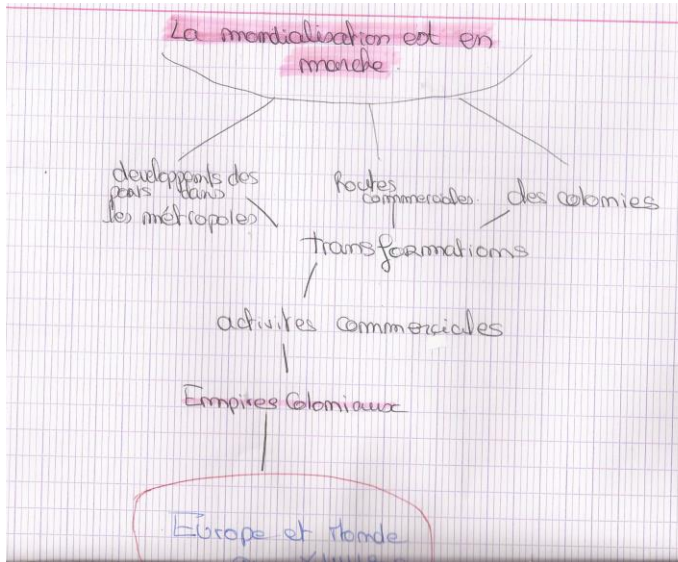 La mondialisation est en
marche
developpents des
ports dans
les métropoles
Routes
commerciales
des colonies
transformations
activites commerciales
Empires Coloniaux
Europe et Monde
au XVIII